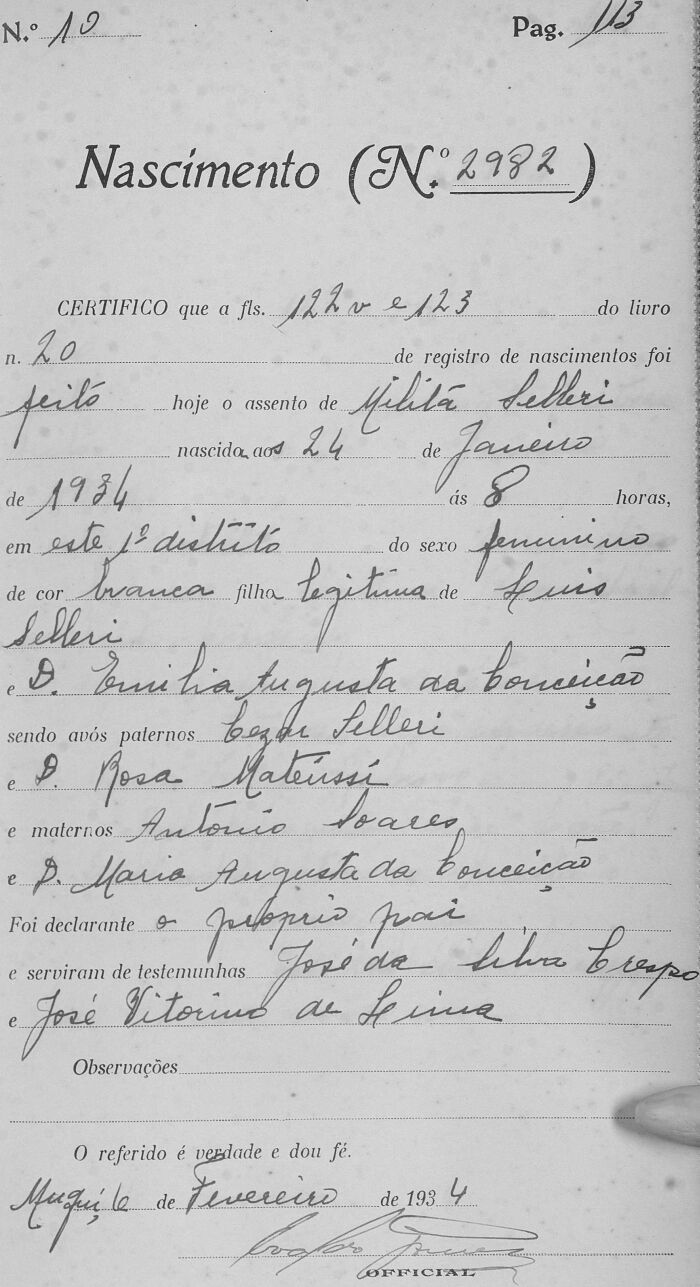 N.º 10 Pag. 113
Nascimento (N.º 2982)
CERTIFICO que a fls. 122v e 123 do livro
n. 20 de registro de nascimentos foi
feito hoje o assento de Milita Selleri
nascida aos 24 de Janeiro
de 1934 ás 8 horas,
em este 1º distrito do sexo feminino
de cor branca filha legitima de Luis
Selleri
e D. Emilia Augusta da Conceição
sendo avós paternos Cezar Selleri
e D. Rosa Mateussi
e maternos Antonio Soares
e D. Maria Augusta da Conceição
Foi declarante o proprio pai
e serviram de testemunhas José da Silva Crespo
e José Vitorino de Lima
Observações
O referido é verdade e dou fé.
Muqui, 6 de Fevereiro de 1934
OFFICIAL